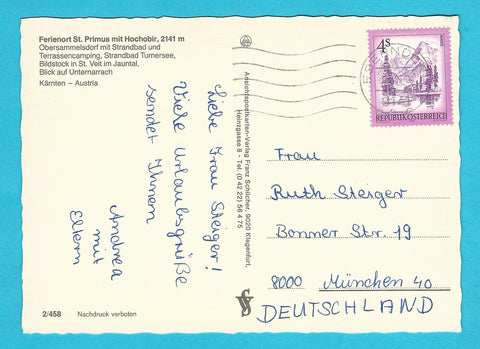 Ferienort St. Primus mit Hochobir, 2141 m
Obersammelsdorf mit Strandbad und
Terrassencamping, Strandbad Turnersee,
Bildstock in St. Veit im Jauntal,
Blick auf Unternarrach
Kärnten – Austria
Liebe Frau Steiger!
Viele Urlaubsgrüße
sendet Ihnen
Andrea
mit
Eltern
2/458 Nachdruck verboten
Ansichtspostkarten-Verlag Franz Schilcher, 9020 Klagenfurt,
Heinzgasse 8 - Tel. (0 42 22) 56 4 75
4s
REPUBLIK ÖSTERREICH
Frau
Ruth Steiger
Bonner Str. 19
8000 München 40
DEUTSCHLAND